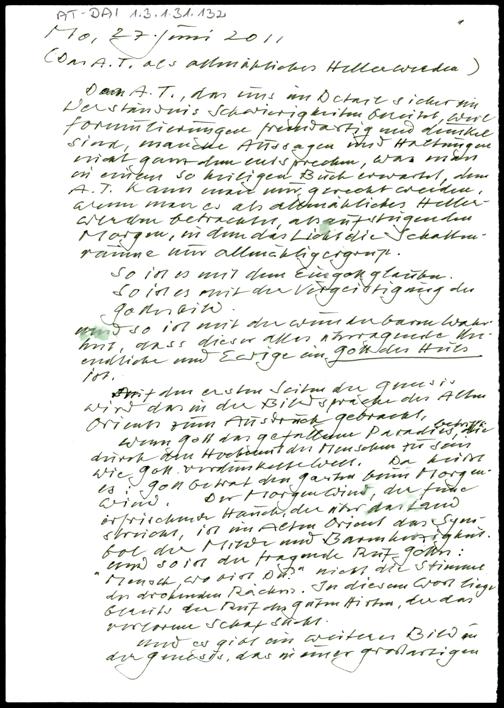 AT-DAI 1.3.1.31.132
Mo, 27. Juni 2011
(Das A.T. als allmähliches Hellerwerden)
Das A.T., das uns im Detail sicher im
Verständnis Schwierigkeiten bereitet, weil
Formulierungen fremdartig und dunkel
sind, manche Aussagen und Haltungen
nicht ganz dem entsprechen, was man
in einem so heiligen Buch erwartet, dem
A.T. kann man nur gerecht werden,
wenn man es als allmähliches Heller-
werden betrachtet, als aufsteigenden
Morgen, in dem das Licht die Schatten-
räume nur allmählich
So ist es mit dem Eingottglauben.
So ist es mit der Vergeistigung des
Gottesbild.
und so ist mit der wunderbaren Wahr-
heit, dass dieser alles überragende Un-
endliche und Ewige ein Gott des Heils
ist.
Auf den ersten Seiten der Genesis
wird das in der Bildsprache des Alten
Orients zum Ausdruck gebracht,
wenn Gott das gefallene Paradies, betritt, die
durch den Hochmut des Menschen zu sein
wie Gott verdunkelte Welt. Da heisst
es: Gott betrat den Garten beim Morgen-
wind. Der Morgenwind, der feine
erfrischende Hauch, der über das Land
streicht, ist im Alten Orient das Sym-
bol der Milde und Barmherzigkeit.
und so ist der fragende Ruf Gottes:
"Mensch, wo bist Du?" nicht die Stimme
des drohenden Rächers. In diesem Wort liegt
bereits der Ruf des guten Hirten, der das
verlorene Schaf sucht.
und es gibt ein weiteres Bild in
der Genesis, das in einer grossartigen